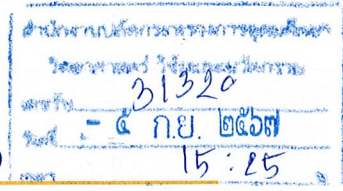 สำนักงานปลัดกระทรวงการอุดมศึกษา
วิทยาศาสตร์ วิจัยและนวัตกรรม
เลขรับ 31320
วันที่ - ๕ ก.ย. ๒๕๖๗
เวลา 15:25